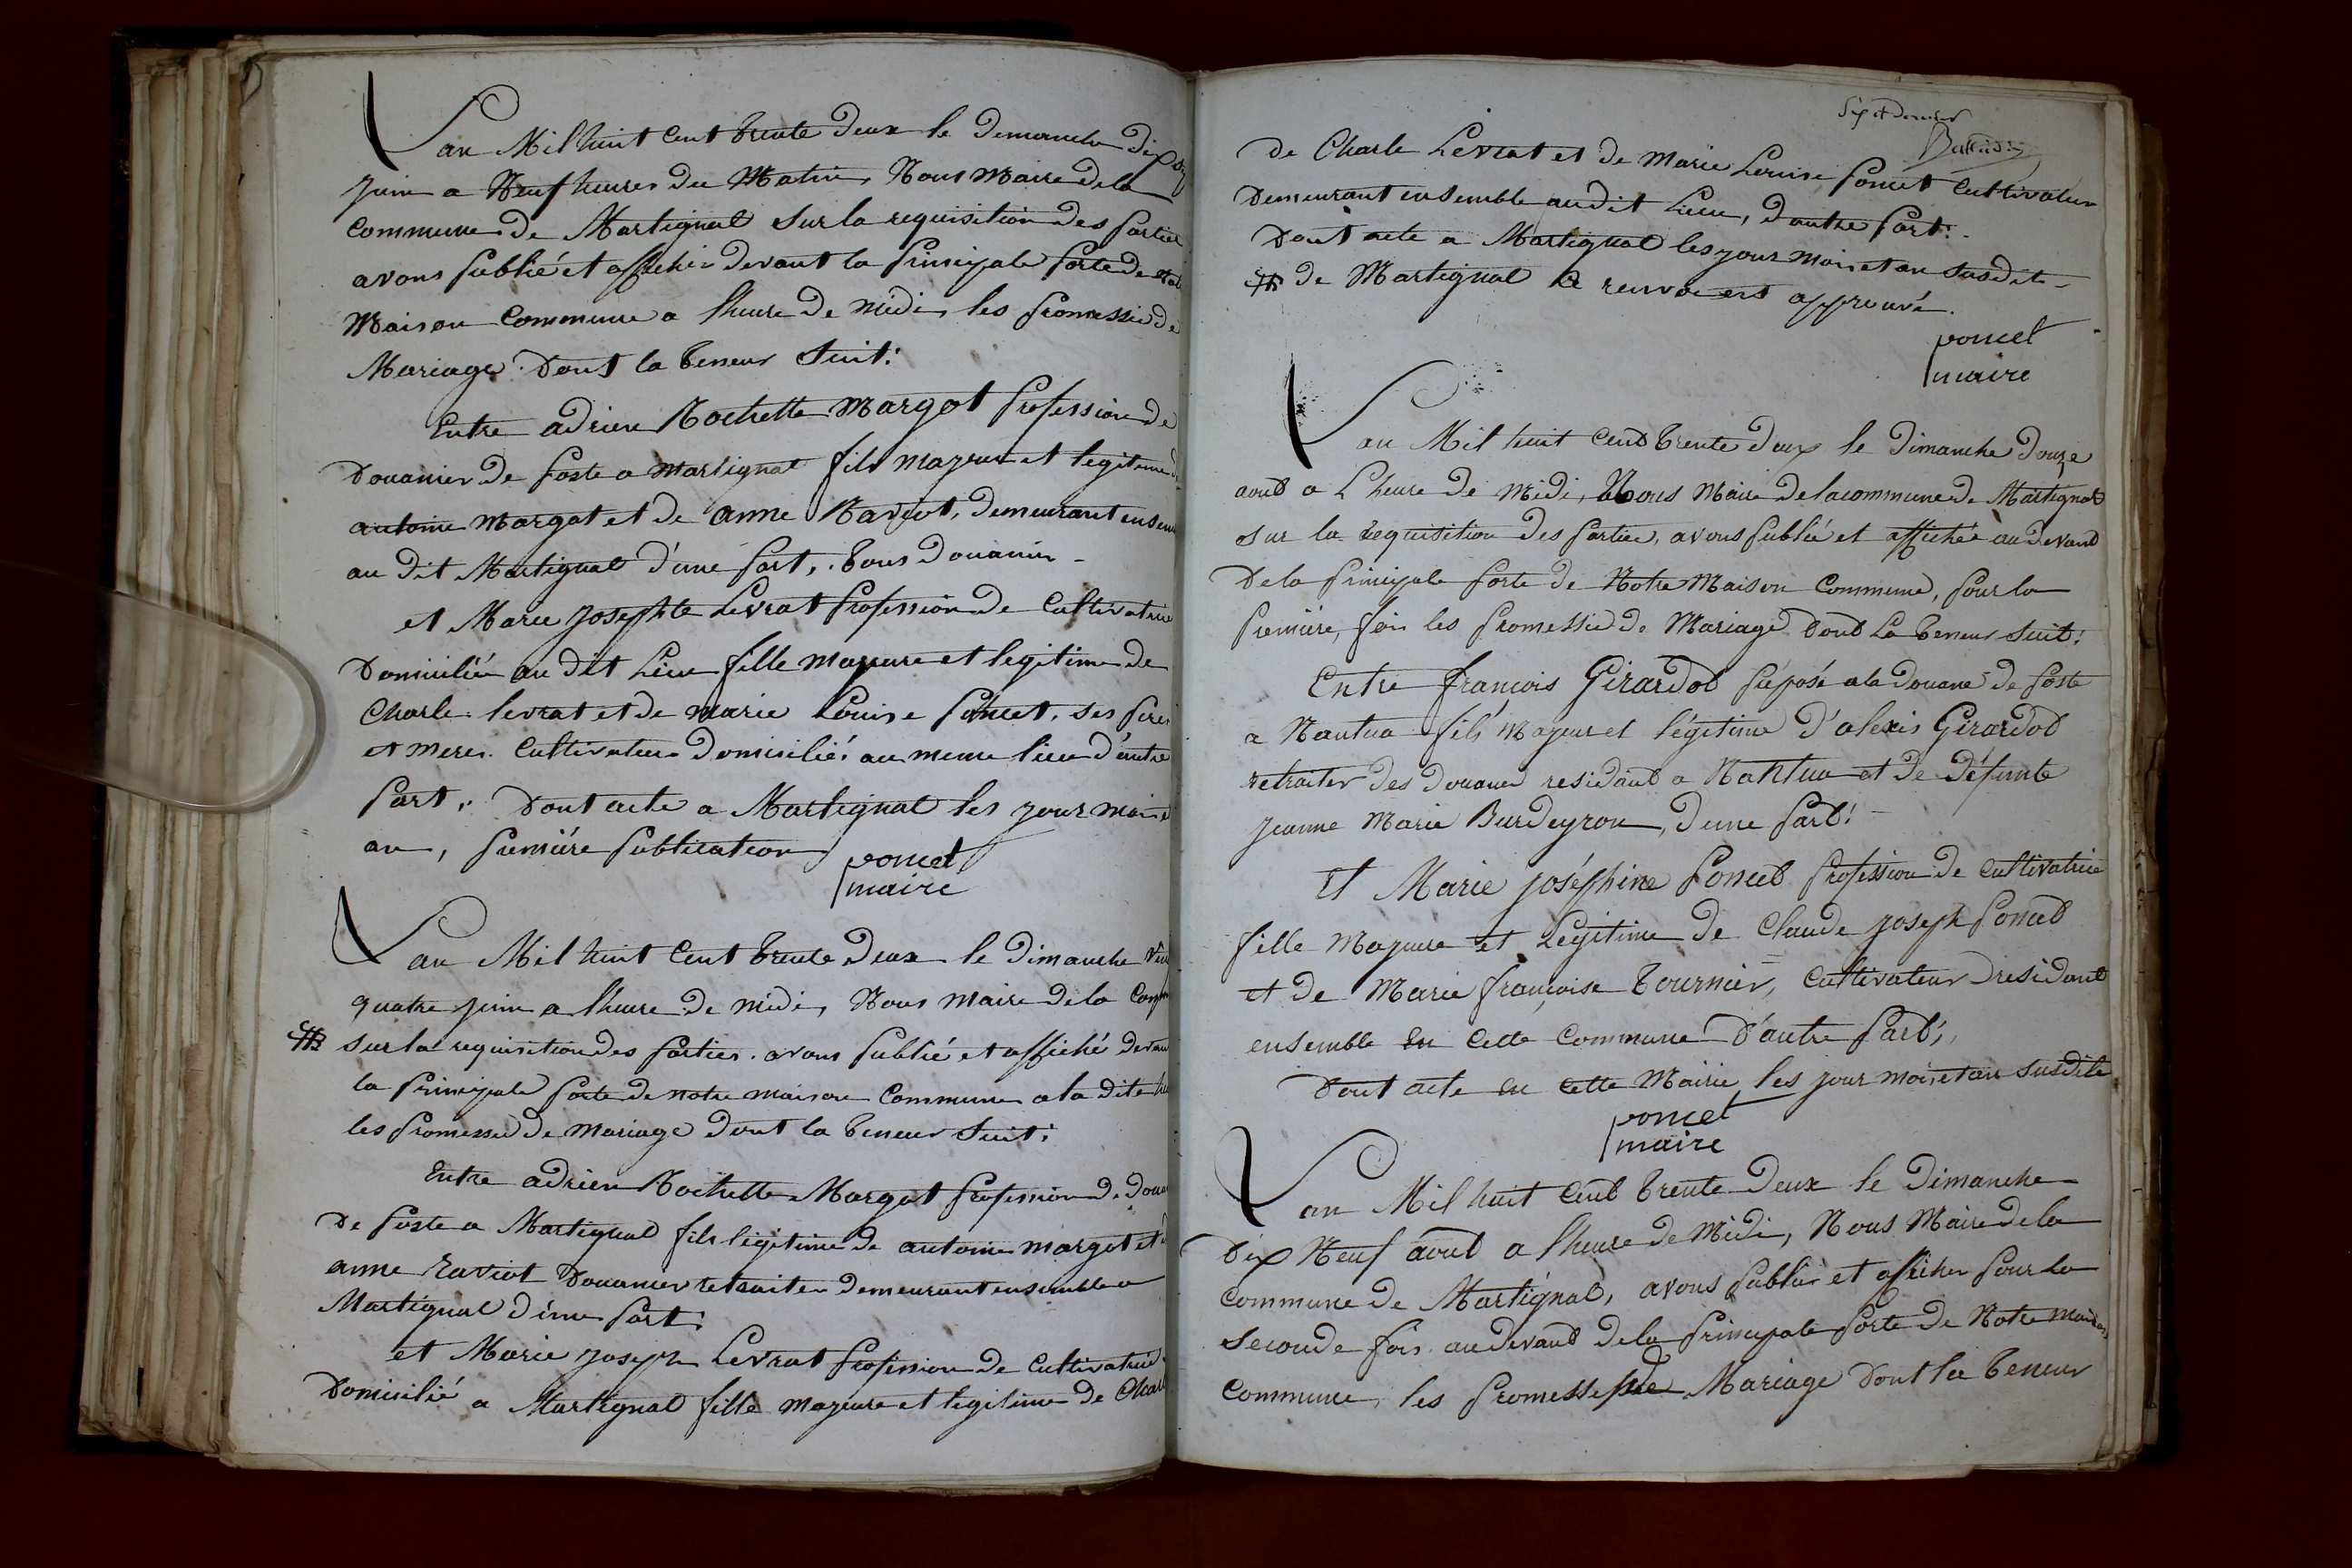 L'an Mil huit Cent trente deux le demanche dix sept
juin a Neuf heures du Matin, Nous Maire dela
commune de Martignat sur la requisition des parties
avons publié et afficher devant la principale porte de notre
Maison Commune a lheure de midi, les promesses de
Mariage dont la teneur suit:
Entre adrien Rochette Margot profession de
Douanier de poste a Martignat fils majeur et legitime de
antoine Margot et de anne Raviot, demeurant ensemble
au dit Martignat d'une part, tous douanier
et Marie josephte Levrat profession de Cultivatrice
Domiciliée au dit Lieu fille majeure et legitime de
Charle levrat et de Marie Louise poncet, ses peres
et meres Cultivateur domiciliés au meme lieu d'autre
part, dont acte a Martignat les jour mois et
an, première publication
poncet
maire
L'an Mil huit Cent trente deux le dimanche Vingt
quatre juin a lheure de midi, Nous Maire dela Commune
sur la requisition des parties avons publié et affiché devant
la principale porte de notre maison Commune a la dite heure
les promesses de Mariage dont la teneur suit:
Entre adrien Rochette Margot profession de douanier
De poste a Martignat fils légitime de antoine Margot et d
anne raviot Douanier retraiter demeurant ensemble a
Martignat d'une part;
et Marie joseph Levrat profession de Cultivatrice
Domicilié a Martignat fille majeure et legitime de Charle
Sept dernier
de Charle Levrat et de Marie Louise poncet Cultivateur
Demeurant ensemble au dit Lieu, d'autre part.
Dont acte a Martignat les jour mois et an susdit
de Martignat le renvoi est approuvé.
poncet
maire
L'an Mil huit Cent trente deux le dimanche douze
aout a L'heure de midi, Nous Maire de la commune de Martignat
sur la requisition des parties, avons publié et affiché au devant
De la principale porte de Notre Maison Commune, pour la
première, fois les promesses de Mariage dont la teneur suit:
Entre francois Girardot préposé a la douane de poste
a Nantua fils majeur et légitime d'alexis Girardot
retraiter des douanes residant a Nantua et de défunte
jeanne Marie Burdeyron, d'une part:
Et Marie joséphine poncet profession de cultivatrice
fille Majeure et Legitime de Claude joseph poncet
et de Marie françoise tournier, cultivateur residant
ensemble en cette commune d'autre part;
Dont acte en cette Mairie les jour mois et an susdits
poncet
maire
L'an Mil huit Cent trente deux le dimanche
Dix Neuf aout a lheure de Midi, Nous Maire de la
commune de Martignat, avons publié et afficher pour la
seconde fois au devant dela principale porte de Notre Maison
Commune, les promesses de Mariage dont la teneur